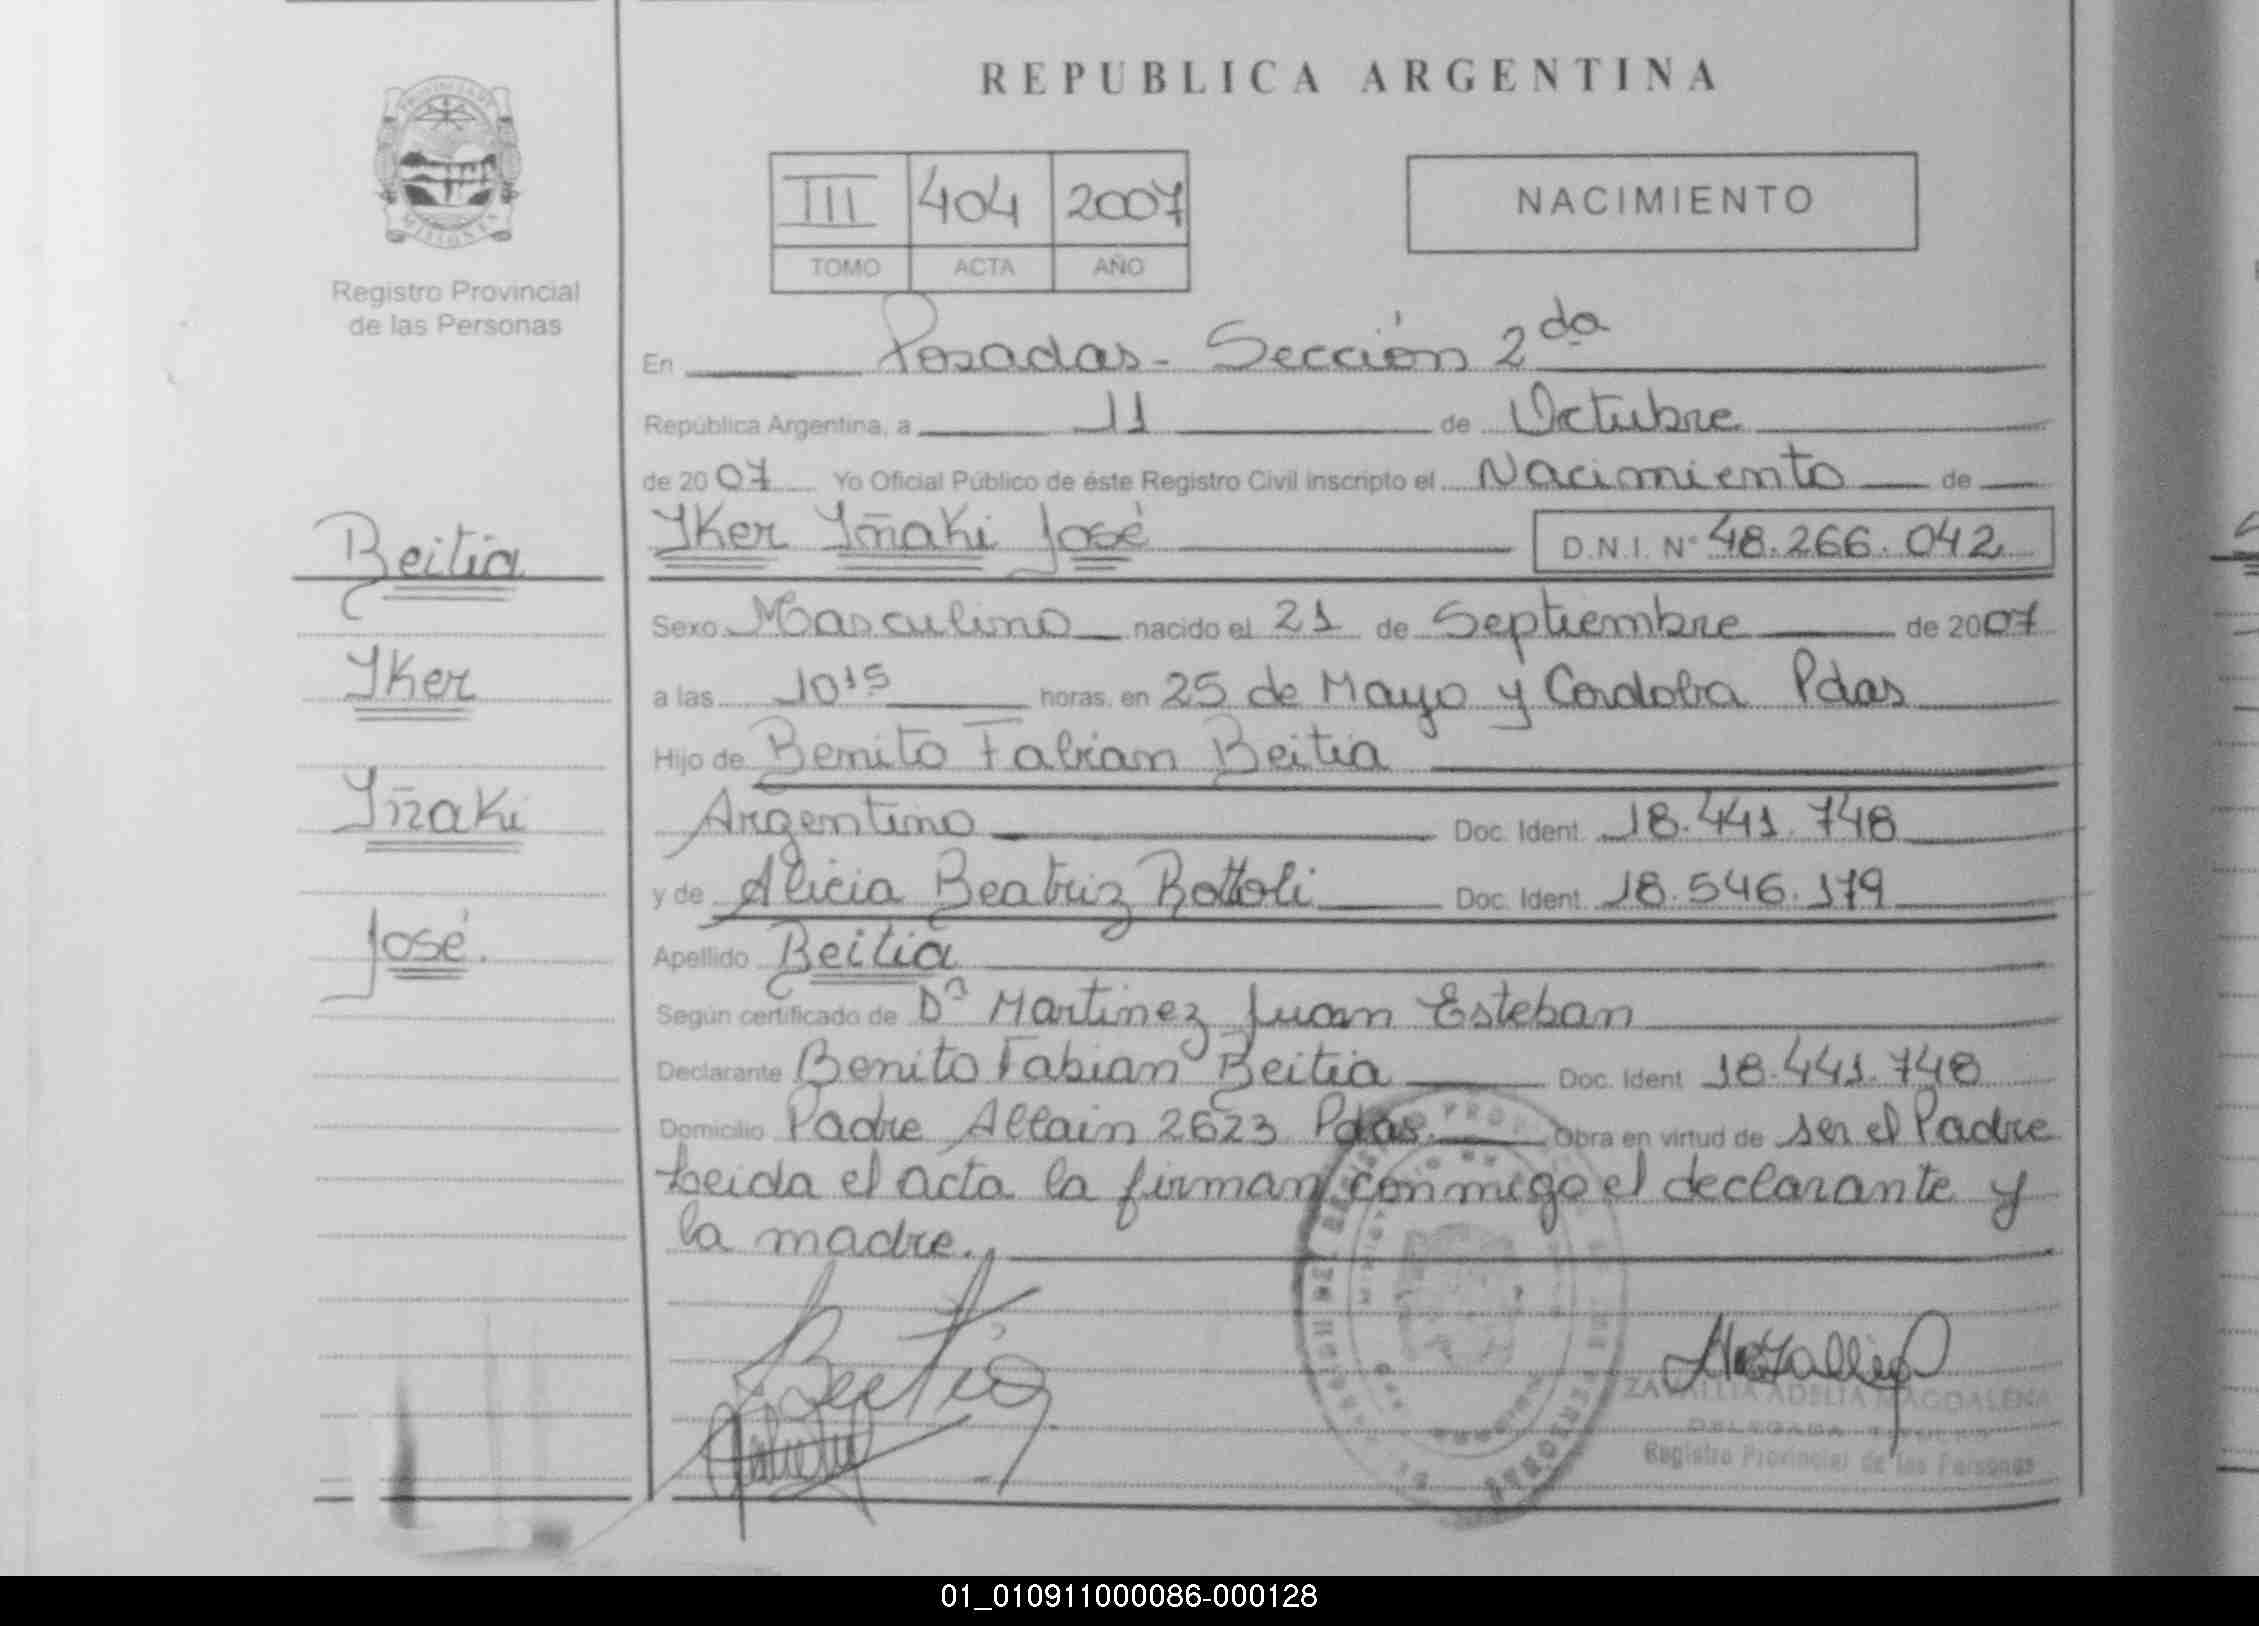 REPUBLICA ARGENTINA
III 404 2007
TOMO ACTA AÑO
NACIMIENTO
MISIONES
Registro Provincial
de las Personas
En Posadas - Sección 2da
República Argentina, a 11 de Octubre
de 2007 Yo Oficial Público de éste Registro Civil inscripto el Nacimiento de
Beitia
Iker Iñaki José D.N.I. N° 48.266.042
Sexo Masculino nacido el 21 de Septiembre de 2007
Iker
a las 10 15 horas, en 25 de Mayo y Cordoba Pdas
Hijo de Benito Fabian Beitia
Iñaki
Argentino Doc. Ident. 18.441.748
y de Alicia Beatriz Bottoli Doc. Ident. 18.546.179
José.
Apellido Beitia
Según certificado de Dr Martinez Juan Esteban
Declarante Benito Fabian Beitia Doc. Ident 18.441.748
Domicilio Padre Allain 2623 Pdas. Obra en virtud de ser el Padre
Leida el acta la firman conmigo el declarante y
la madre.
Beitia
ZAVALLIA ADELIA MAGDALENA
DELEGADA TITULAR
Registro Provincial de las Personas
01_010911000086-000128